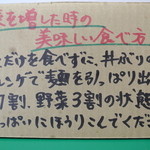 を増した時の
美味しい食べ方
だけを食べずに、丼がりの
レンゲで麺を引っぱり出
7割、野菜3割の状態
っぱいにほうりこんでくだ